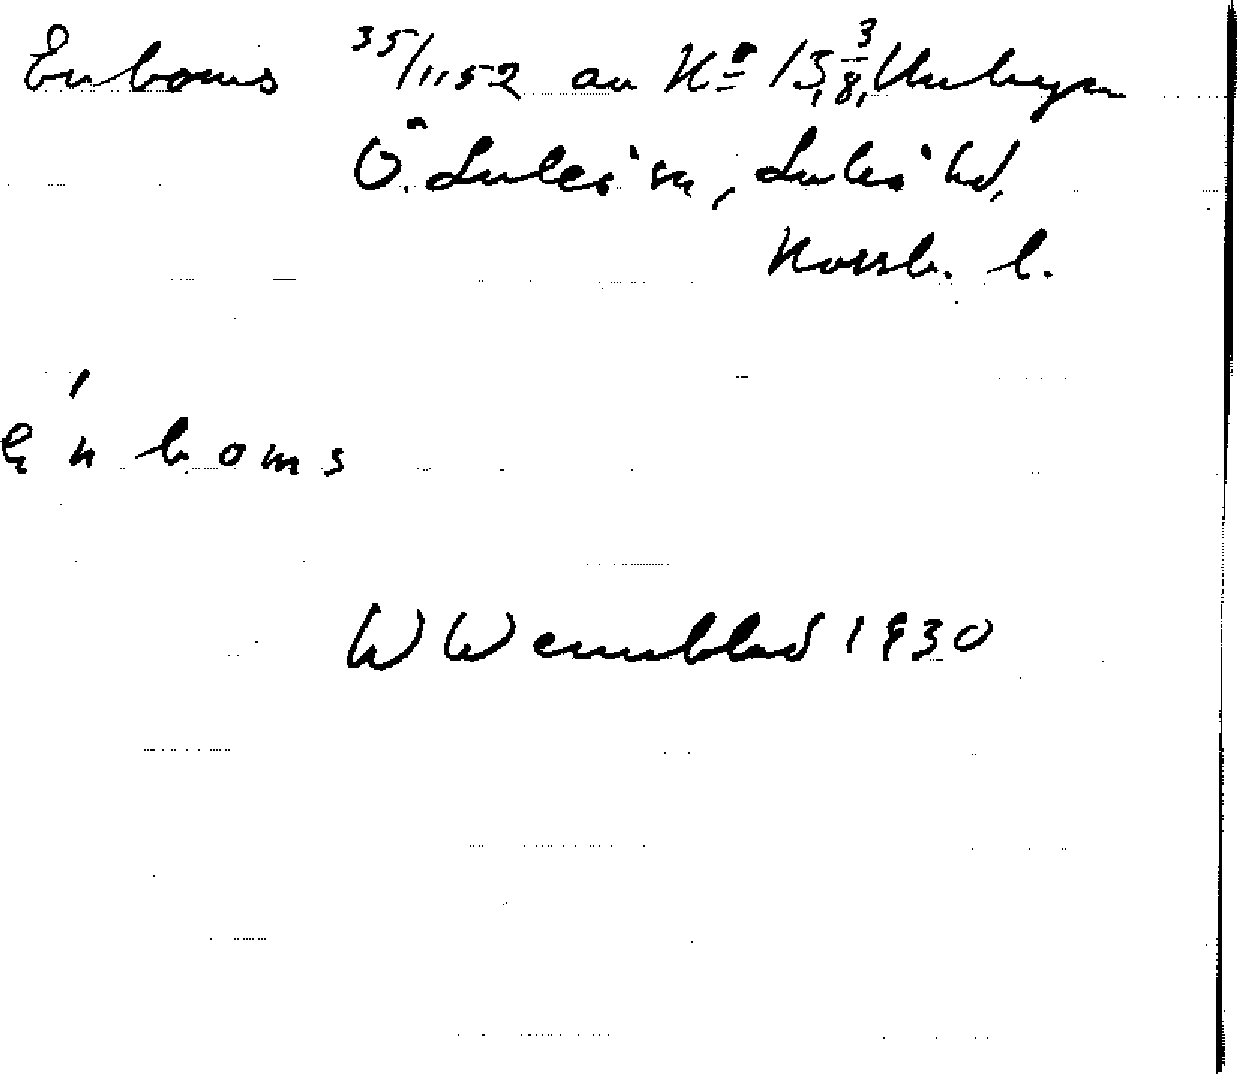 Enboms 35/1152 av No 15, 3/8, Unbyn
Ö. Luleå sn, Luleå hd,
Norrb. l.
E'n b o m s
W Wennblad 1930